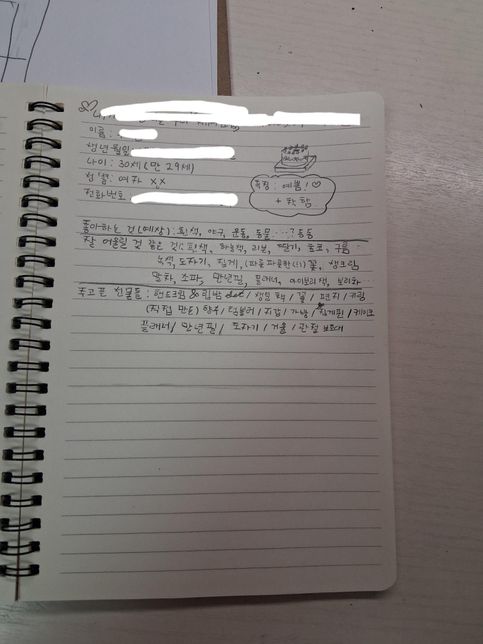 이름:
생년월일:
나이: 30세 (만 29세)
성별: 여자 xx
전화번호
특징: 예쁨! ♡
+ 착함
좋아하는 것 (예상): 흰색, 야구, 운동, 동물 ...? 등등
잘 어울릴 것 같은 것: 흰색, 하늘색, 리본, 딸기, 초코, 구름
녹색, 도자기, 집게, (파릇파릇한(!)) 꽃, 생크림
말차, 소파, 만년필, 플래너, 아이보리색, 보라
주고픈 선물들: 핸드크림 & 립밤 set / 생일 / 꽃 / 편지 / 키링
(직접 만든) 향수 / 텀블러 / 지갑 / 가방 / 집게핀 / 케이크
플래너 / 만년필 / 도자기 / 거울 / 관절 보호대